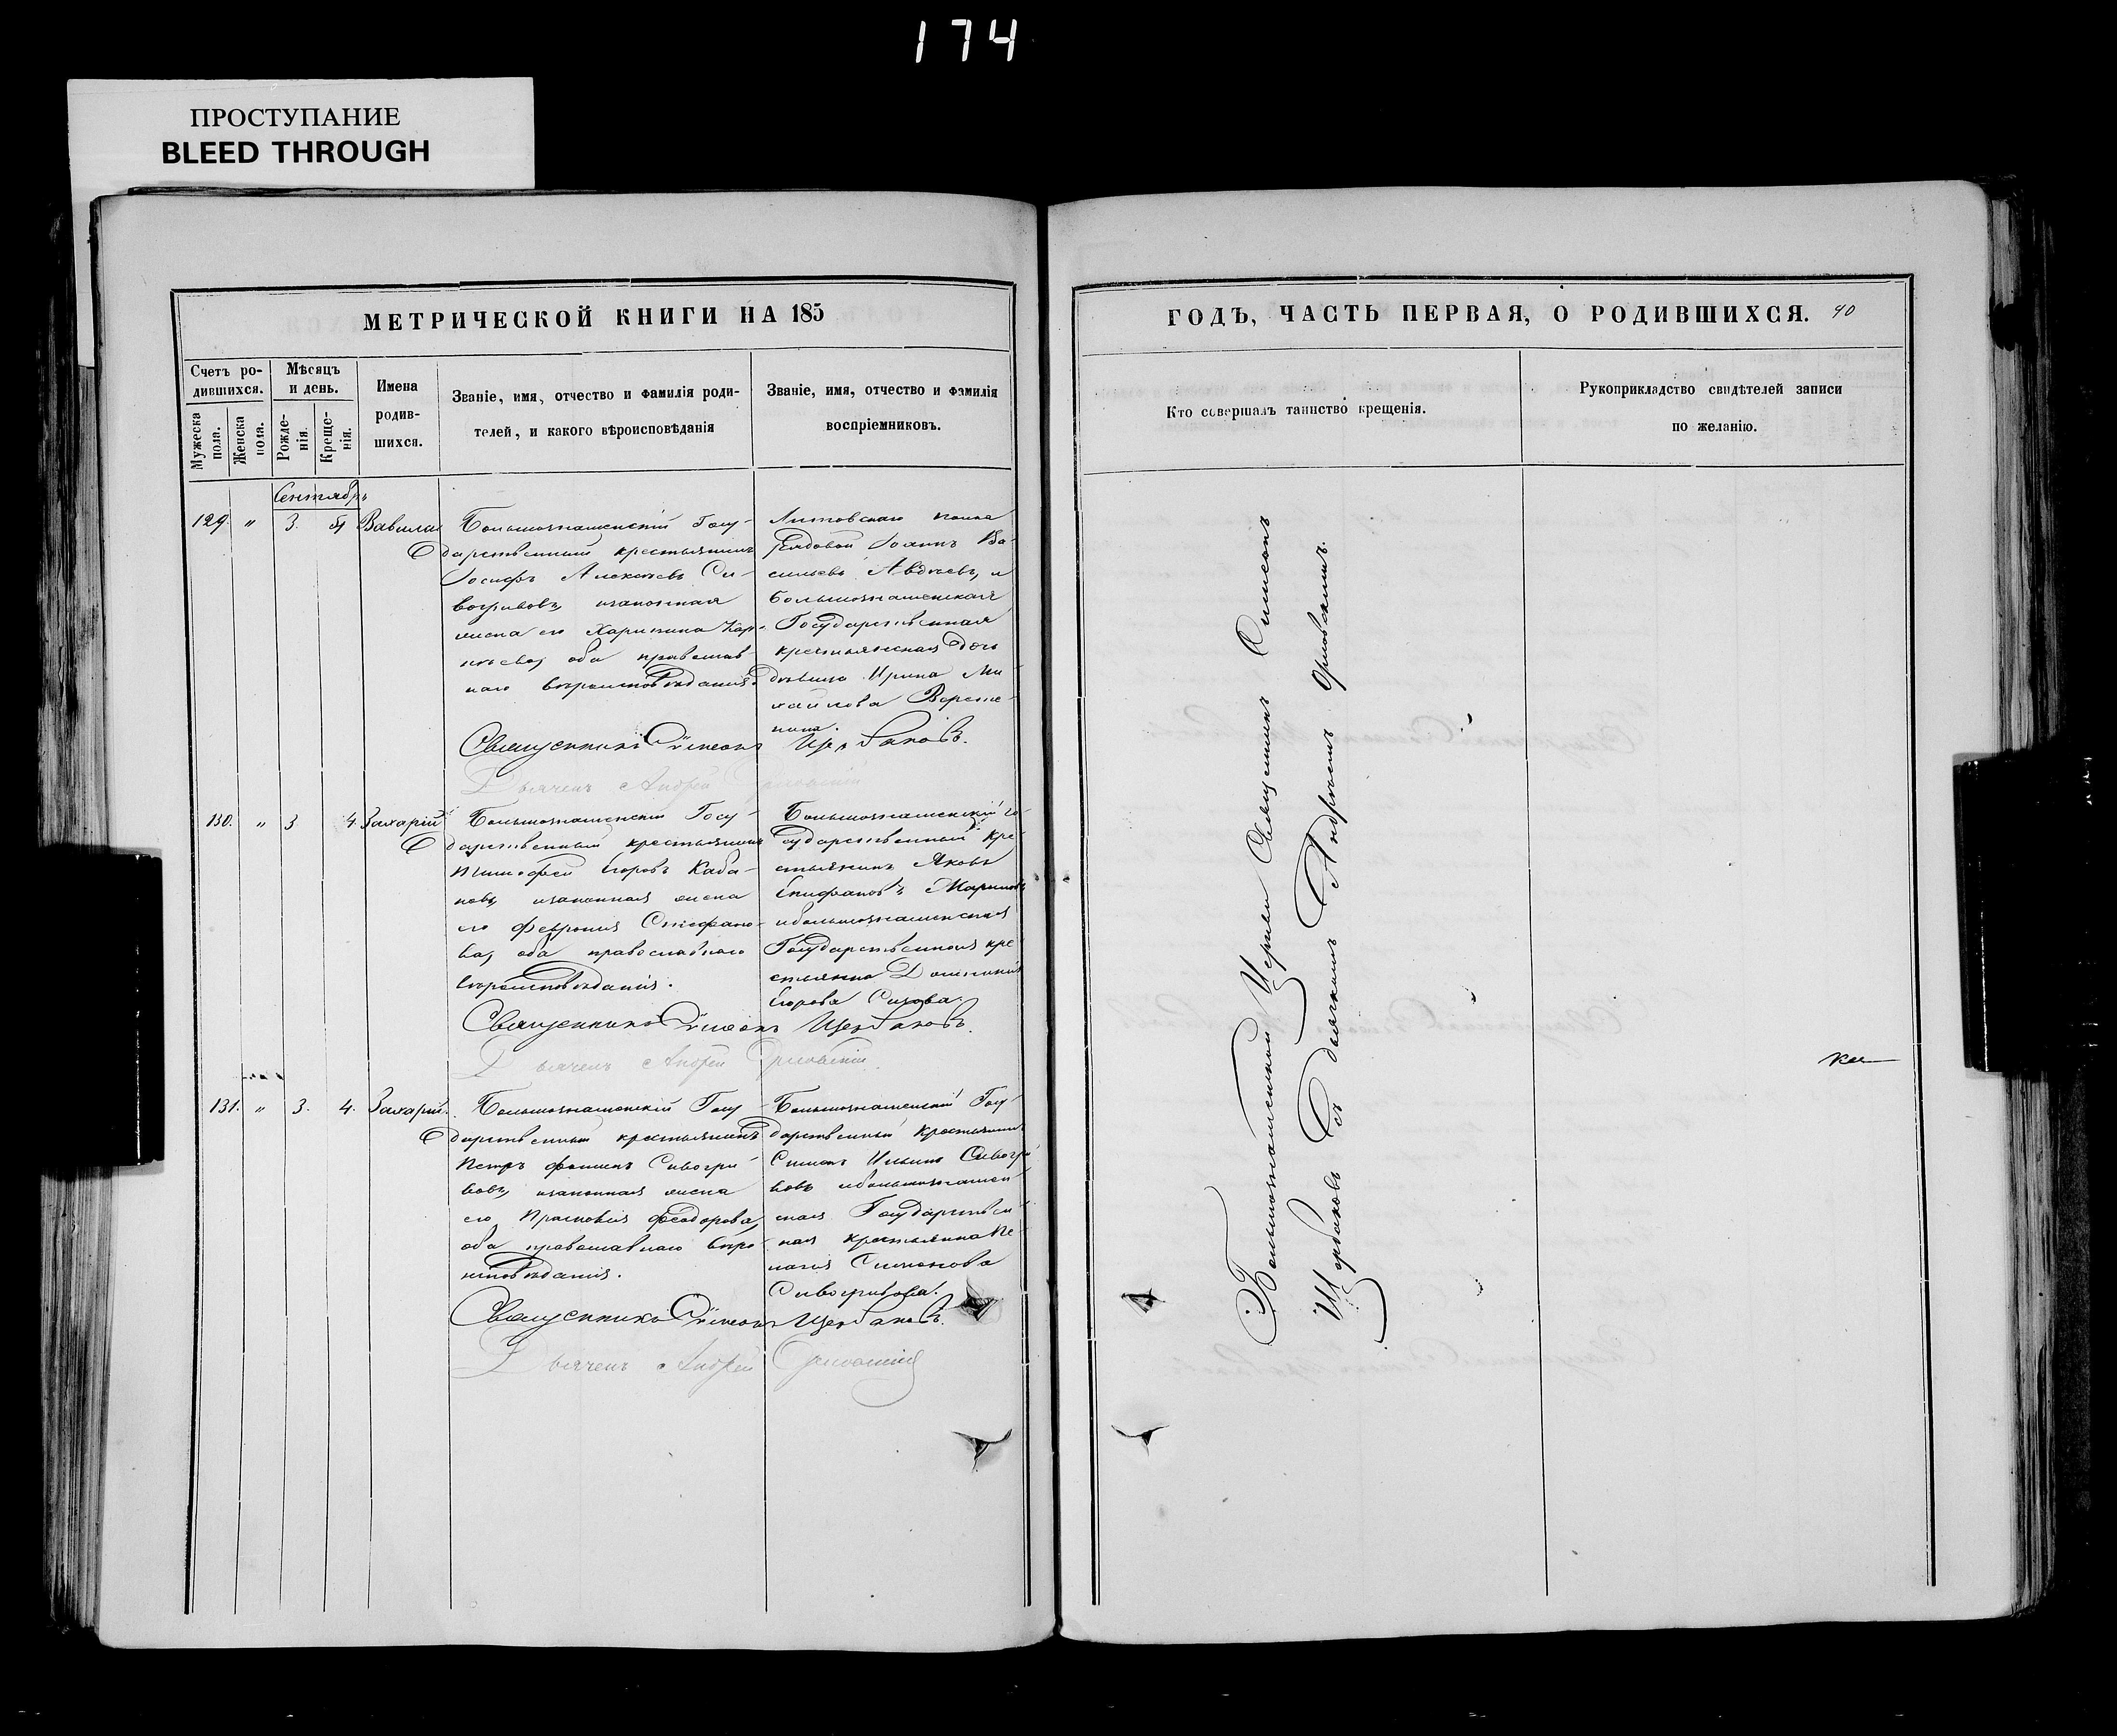 174
ПРОСТУПАНИЕ
BLEED THROUGH
МЕТРИЧЕСКОЙ КНИГИ НА 185
Счетъ ро-
дившихся.
Мужеска
пола.
Женска
пола.
Мѣсяцъ
и день.
Рожде-
нія.
Креще-
нія.
Имена
родив-
шихся.
Званіе, имя, отчество и фамилія роди-
телей, и какого вѣроисповѣданія
Званіе, имя, отчество и фамилія
воспріемниковъ.
Сентябрь
129. " 3. 4 Вавила
Большознаменскій Госу-
дарственный крестьянинъ
Іосифъ Алексѣевъ Си-
вогривовъ, изаконная
жена его Харитина Кар-
пѣева, оба православ-
наго вѣроисповѣданія.
Литовскаго полка
Рядовой Іоаннъ Ва-
сильевъ Авдѣевъ, и
Большознаменская
Государственная
крестьянская дочь
дѣвица Ирина Ми-
хайлова Вереще-
нина.
Священникъ Симеонъ Щербаковъ.
Дьячекъ Андрей Орловскій
130. " 3 4. Захарій
Большознаменскій Госу-
дарственный крестьянинъ
Тимофей Егоровъ Каба-
новъ, изаконная жена
его Феврония Стефано-
ва, оба православнаго
вѣроисповѣданія.
Большознаменскій Го-
сударственный кре-
стьянинъ Яковъ
Епифановъ
ибольшознаменская
Государственная кре-
стьянка
Егорова Сизова.
Священникъ Симеонъ Щербаковъ.
Дьячекъ Андрей Орловскій.
131. " 3. 4. Захарій.
Большознаменскій Госу-
дарственный крестьянинъ
Петръ Фоминъ Сивогри-
вовъ, изаконная жена
его Прасковия Феодорова,
оба православнаго вѣро-
исповѣданія.
Большознаменскій Госу-
дарственный Крестьянинъ
Симонъ Ильинъ Сивогри-
вовъ ибольшознамен-
ская Государствен-
ная крестьянка Пе-
лагия Симонова
Сивогривова.
Священникъ Симеонъ Щербаковъ.
Дьячекъ Андрей Орловскій
ГОДЪ, ЧАСТЬ ПЕРВАЯ, О РОДИВШИХСЯ. 40
Кто совершалъ таинство крещенія.
Рукоприкладство свидѣтелей записи
по желанію.
Большознаменской Церкви Священникъ Симеонъ
Щербаковъ Съ дьячкомъ Андреемъ Орловскимъ.